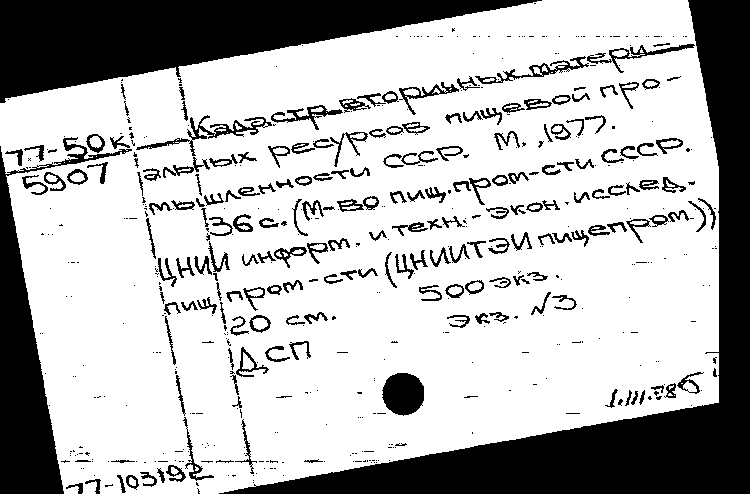 77-50к
5907
Кадастр вторичных матери-
альных ресурсов пищевой про-
мышленности СССР. М., 1977.
36 с. (М-во пищ. пром-сти СССР.
ЦНИИ информ. и техн.-экон. исслед.
пищ. пром-сти (ЦНИИТЭИпищепром))
20 см. 500 экз.
ДСП экз. №3
1.III.78б
77-103192